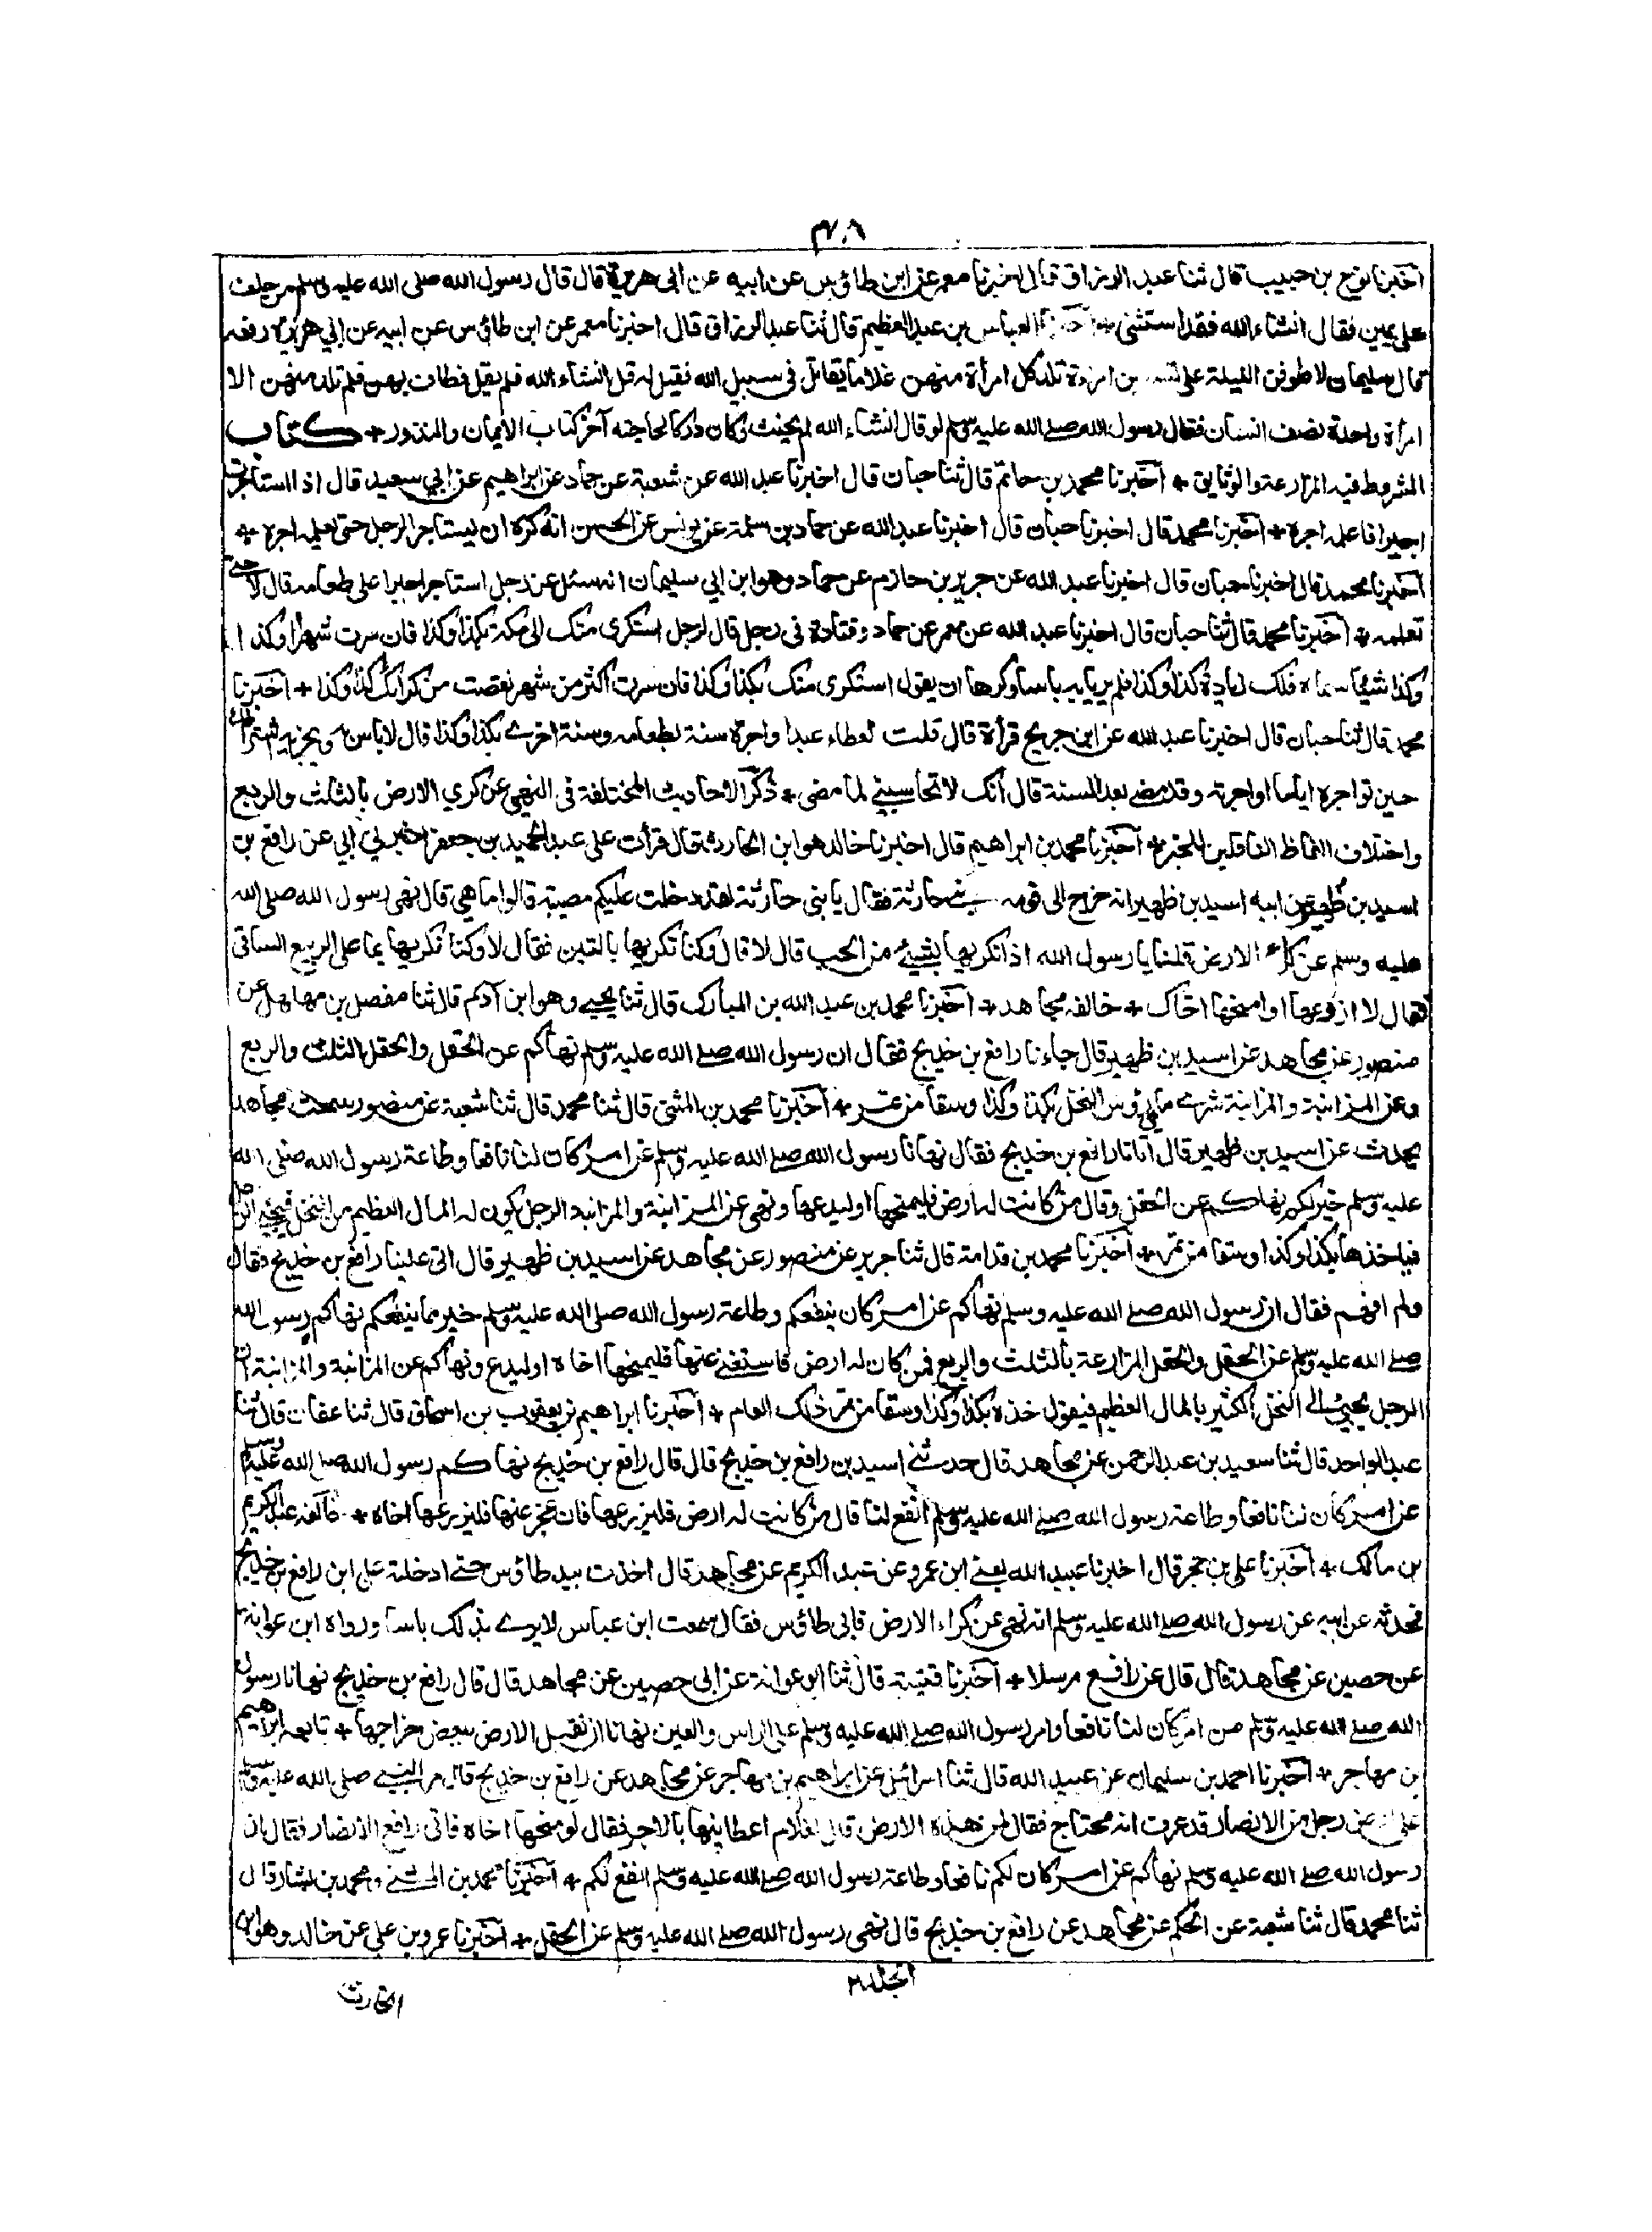 ٣٠٨
اخبرنا نوح بن حبيب قال ثنا عبد الرزاق قال اخبرنا معمر عن ابن طاؤس عن ابيه عن ابى هريرة قال قال رسول الله صلى الله عليه وسلم من حلف
على يمين فقال انشاء الله فقد استثنى + اخبرنا العباس بن عبد العظيم قال ثنا عبد الرزاق قال اخبرنا معمر عن ابن طاؤس عن ابيه عن ابي هريرة رفعه
قال سليمان لاطوفن الليلة على تسعين امرءة تلد كل امرأة منهن غلاما يقاتل فى سبيل الله فقيل له قل انشاء الله فلم يقل فطاف بهن فلم تلد منهن الا
امرأة واحدة نصف انسان فقال رسول الله صلے الله عليه وسلم لو قال انشاء الله لم يحنث وكان دركا لحاجته آخر كتاب الايمان والنذور + كتاب
الشروط فيه المزارعة والوثايق + اخبرنا محمد بن حاتم قال ثنا حبان قال اخبرنا عبد الله عن شعبة عن حماد عن ابراهيم عن ابي سعيد قال اذا استاجرت
اجيرا فاعلمه اجره + اخبرنا محمد قال اخبرنا حبان قال اخبرنا عبد الله عن حماد بن سلمة عن يونس عن الحسن انه كره ان يستاجر الرجل حتى يعلمه اجره +
اخبرنا محمد قال اخبرنا حبان قال اخبرنا عبد الله عن جرير بن حازم عن حماد وهو ابن ابي سليمان انه سئل عن رجل استاجر اجيرا على طعامه قال لا حتے
تعلمه + اخبرنا محمد قال ثنا حبان قال اخبرنا عبد الله عن معمر عن حماد وقتادة فى رجل قال لرجل استكرى منك الى مكة بكذا وكذا فان سرت شهرا وكذا ا
وكذا شيئا سماه فلك زيادة كذا وكذا فلم يريا به باسا وكرها ان يقول استكرى منك بكذا وكذا فان سرت اكثر من شهر نقصت من كرائك كذا وكذا + اخبرنا
محمد قال ثنا حبان قال اخبرنا عبد الله عن ابن جريج قرأة قال قلت لعطاء عبدا واجره سنة بطعامه وسنة اخرے بكذا وكذا قال لا باس به ويجزيه اشتراطك
حين تواجره اياما او اجرته وقد مضے بعد السنة قال انك لا تحاسبنے لما مضى + ذكر الاحاديث المختلفة فى النهي عن كري الارض بالثلث والربع
واختلاف الفاظ الناقلين للخبر + اخبرنا محمد بن ابراهيم قال اخبرنا خالد هو ابن الحارث قال قرأت على عبد الحميد بن جعفر اخبرني ابي عن رافع بن
اسيد بن ظهير عن ابيه اسيد بن ظهير انه خرج الى قومه بنے حارثة فقال يا بنى حارثة لقد دخلت عليكم مصيبة قالوا ما هي قال نهى رسول الله صلى الله
عليه وسلم عن كراء الارض قلنا يا رسول الله اذا نكريها بشيئ من الحب قال لا قال وكنا نكريها بالتبن فقال لا وكنا نكريها بما على الربيع الساقى
فقال لا ازرعها او امنحها اخاك + خالفه مجاهد + اخبرنا محمد بن عبد الله بن المبارك قال ثنا يحيے وهو ابن آدم قال ثنا مفضل بن مهلهل عن
منصور عن مجاهد عن اسيد بن ظهير قال جاءنا رافع بن خديج فقال ان رسول الله صلے الله عليه وسلم نهاكم عن الحقل والحقل الثلث والربع
وعن المزابنة والمزابنة شرے ما في رؤس النخل بكذا وكذا وسقا من تمر + اخبرنا محمد بن المثنى قال ثنا محمد قال ثنا شعبة عن منصور سمعت مجاهد
يحدث عن اسيد بن ظهير قال اتانا رافع بن خديج فقال نهانا رسول الله صلے الله عليه وسلم عن امر كان لنا نافعا وطاعة رسول الله صلى الله
عليه وسلم خير لكم نهاكم عن الحقل وقال من كانت له ارض فليمنحها او ليدعها ونهى عن المزابنة والمزابنة الرجل يكون له المال العظيم من النخل فيجيء الرجل
فياخذها بكذا وكذا وسقا من تمر + اخبرنا محمد بن قدامة قال ثنا جرير عن منصور عن مجاهد عن اسيد بن ظهير قال اتى علينا رافع بن خديج فقال
ولم افهم فقال ان رسول الله صلے الله عليه وسلم نهاكم عن امر كان ينفعكم وطاعة رسول الله صلى الله عليه وسلم خير مما ينفعكم نهاكم رسول الله
صلے الله عليه وسلم عن الحقل والحقل المزارعة بالثلث والربع فمن كان له ارض فاستغنے عنها فليمنحها اخاه او ليدع ونهاكم عن المزابنة والمزابنة ان
الرجل يجيئ الے النخل الكثير بالمال العظيم فيقول خذه بكذا وكذا وسقا من تمر ذلك العام + اخبرنا ابراهيم بن يعقوب بن اسحاق قال ثنا عفان قال ثنا
عبد الواحد قال ثنا سعيد بن عبد الرحمن عن مجاهد قال حدثنے اسيد بن رافع بن خديج قال قال رافع بن خديج نهاكم رسول الله صلے الله عليه وسلم
عن امر كان لنا نافعا وطاعة رسول الله صلے الله عليه وسلم انفع لنا قال من كانت له ارض فليزرعها فان عجز عنها فليزرعها اخاه + خالفه عبد الكريم
بن مالك + اخبرنا على بن حجر قال اخبرنا عبيد الله يعنے ابن عمرو عن عبد الكريم عن مجاهد قال اخذت بيد طاؤس حتے ادخلته على ابن رافع بن خديج
فحدثه عن ابيه عن رسول الله صلے الله عليه وسلم انه نهى عن كراء الارض فابى طاؤس فقال سمعت ابن عباس لا يرے بذلك باسا ورواه ابن عوانة
عن حصين عن مجاهد قال قال عن رافع مرسلا + اخبرنا قتيبة قال ثنا ابو عوانة عن ابى حصين عن مجاهد قال قال رافع بن خديج نهانا رسول
الله صلے الله عليه وسلم من امر كان لنا نافعا وامر رسول الله صلے الله عليه وسلم على الراس والعين نهانا ان نقبل الارض ببعض خراجها + تابعه ابراهيم
بن مهاجر + اخبرنا احمد بن سليمان عن عبيد الله قال ثنا اسرائيل عن ابراهيم بن مهاجر عن مجاهد عن رافع بن خديج قال مر النبے صلى الله عليه وسلم
على ارض رجل من الانصار قد عرف انه محتاج فقال لمن هذه الارض قال لفلان اعطانيها بالاجر فقال لو منحها اخاه فاتى رافع الانصار فقال ان
رسول الله صلے الله عليه وسلم نهاكم عن امر كان لكم نافعا وطاعة رسول الله صلے الله عليه وسلم انفع لكم + اخبرنا محمد بن المثنے ومحمد بن بشار قال
ثنا محمد قال ثنا شعبة عن الحكم عن مجاهد عن رافع بن خديج قال نهى رسول الله صلے الله عليه وسلم عن الحقل + اخبرنا عمرو بن على عن خالد وهو ابن
الجلد٢
الحارث